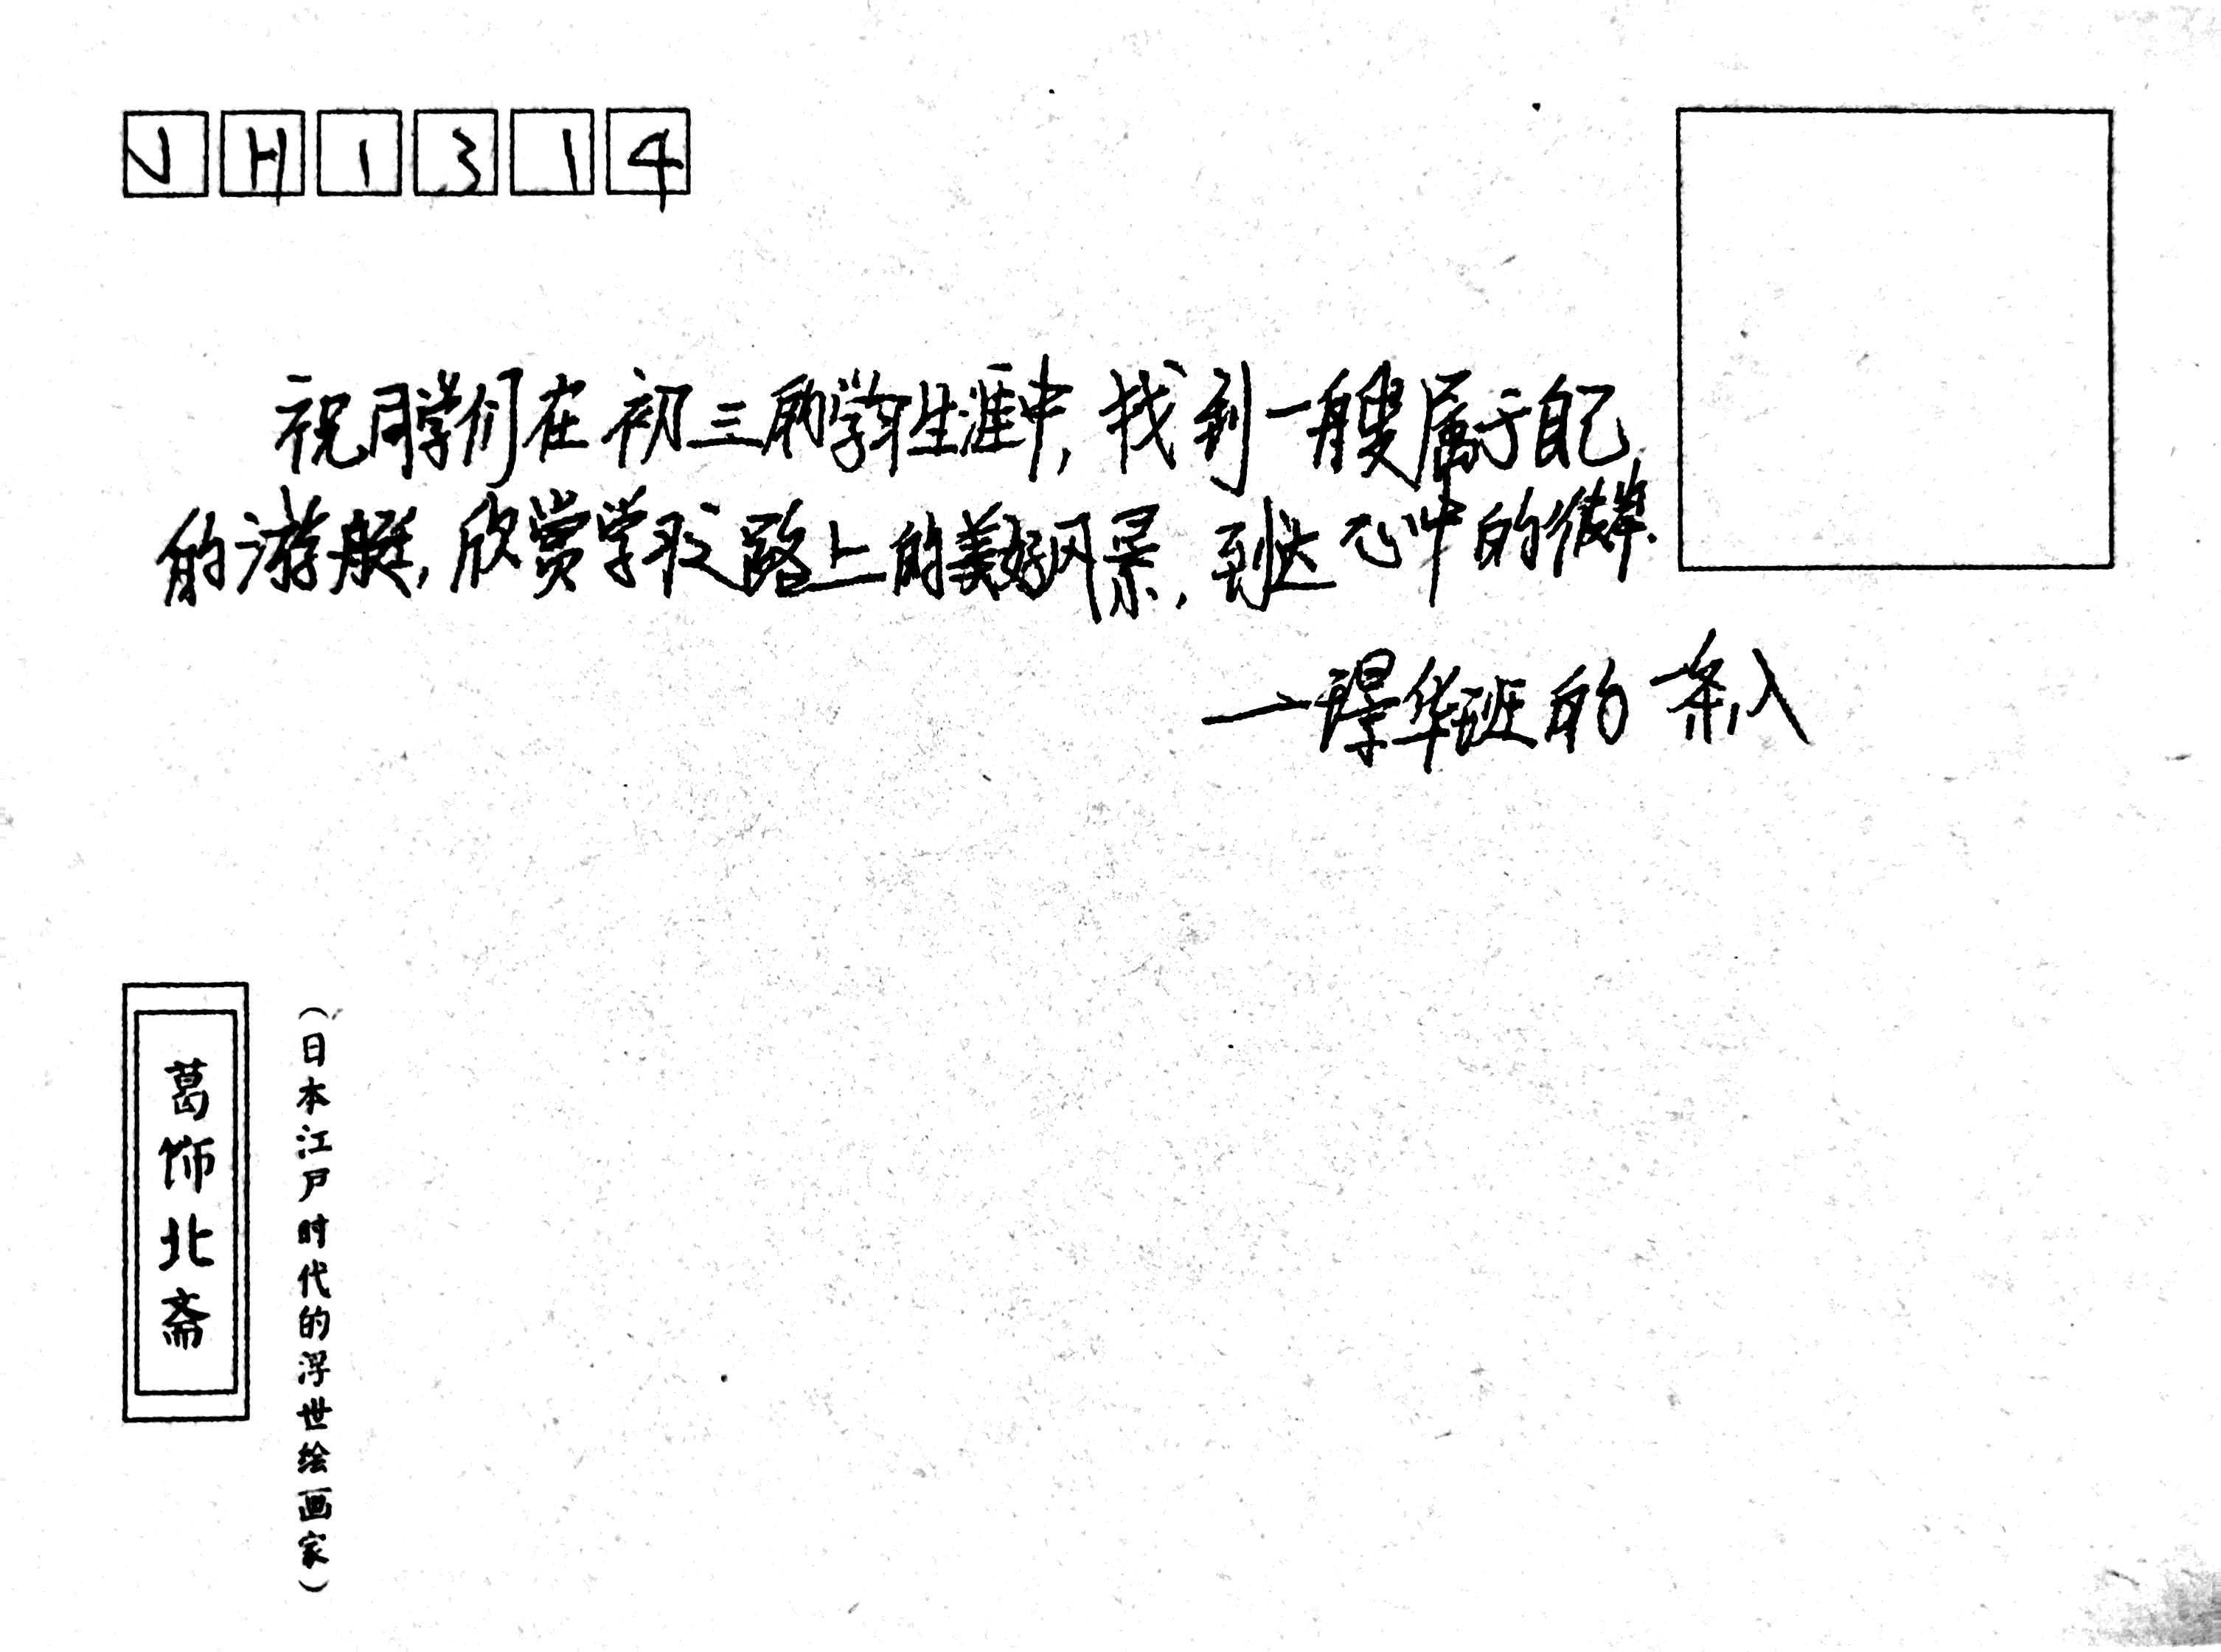 JH1314
祝同学们在初三的学习生涯中,找到一艘属于自己
的游艇,欣赏学习之路上的美好风景,到达心中的彼岸.
華班的
葛饰北斋
(日本江户时代的浮世绘画家)